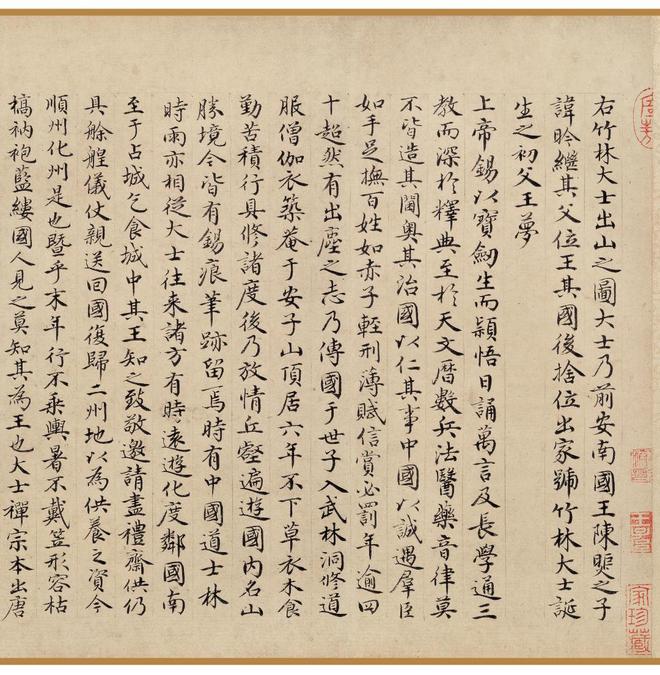 右竹林大士出山之圖大士乃前安南國王陳㷃之子
諱昑繼其父位王其國後捨位出家號竹林大士誕
生之初父王夢
上帝錫以寶劍生而穎悟日誦萬言及長學通三
教而深於釋典至於天文曆數兵法醫藥音律莫
不皆造其閫奧其治國以仁其事中國以誠遇羣臣
如手足撫百姓如赤子輕刑薄賦信賞必罰年逾四
十超然有出塵之志乃傳國于世子入武林洞修道
服僧伽衣築菴于安子山頂居六年不下草衣木食
勤苦積行具修諸度後乃放情丘壑遍遊國內名山
勝境今皆有錫痕筆跡留焉時有中國道士林
時雨亦相從大士往来諸方有時遠遊化度鄰國南
至于占城乞食城中其王知之致敬邀請盡禮齋供仍
具艅艎儀仗親送回國復歸二州地以為供養之資今
順州化州是也暨乎末年行不乘輿暑不戴笠形容枯
槁衲袍藍縷國人見之莫知其為王也大士禪宗本出唐
家珍藏